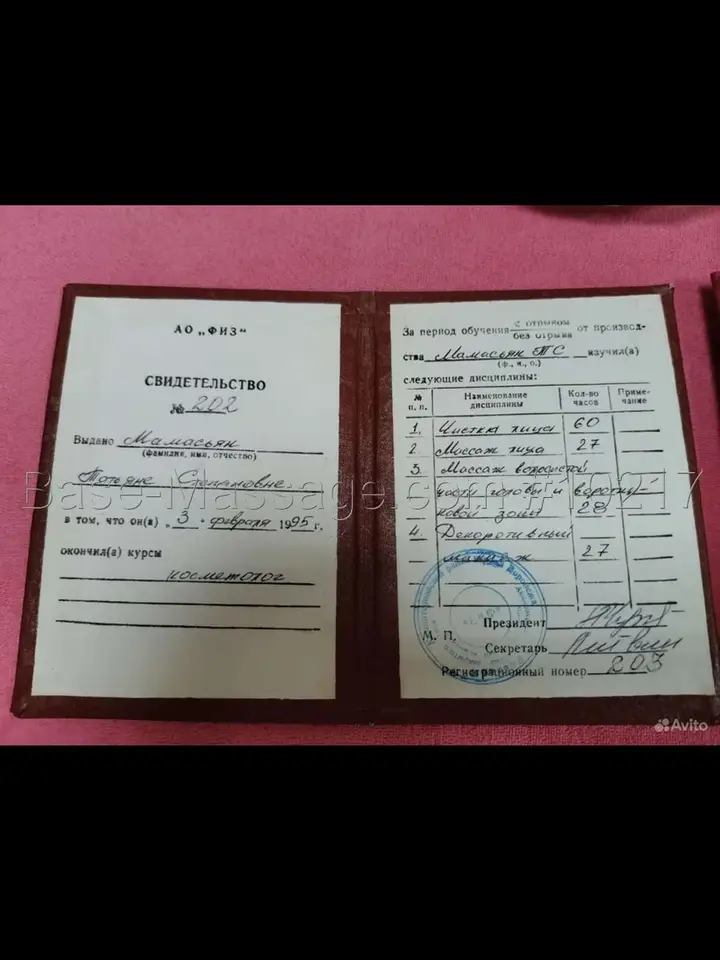 АО „ФИЗ“
СВИДЕТЕЛЬСТВО
№ 202
Выдано Мамасьян
(фамилия, имя, отчество)
Татьяне Степановне
в том, что он(а) „3“ февраля 1995 г.
окончил(а) курсы
косметолог
За период обучения с отрывом
без отрыва от производ-
ства Мамасьян ТС изучил(а)
(ф., и., о.)
следующие дисциплины:
№ п. п. Наименование дисциплины Кол-во часов Приме-чание
1. Чистка лица 60
2 Массаж лица 27
3. Массаж волосистой
части головы и воротни-
ковой зоны 28
4. Декоративный
макияж 27
М. П.
Президент
Секретарь
Регистрационный номер 203
Base-Massage.com
Avito